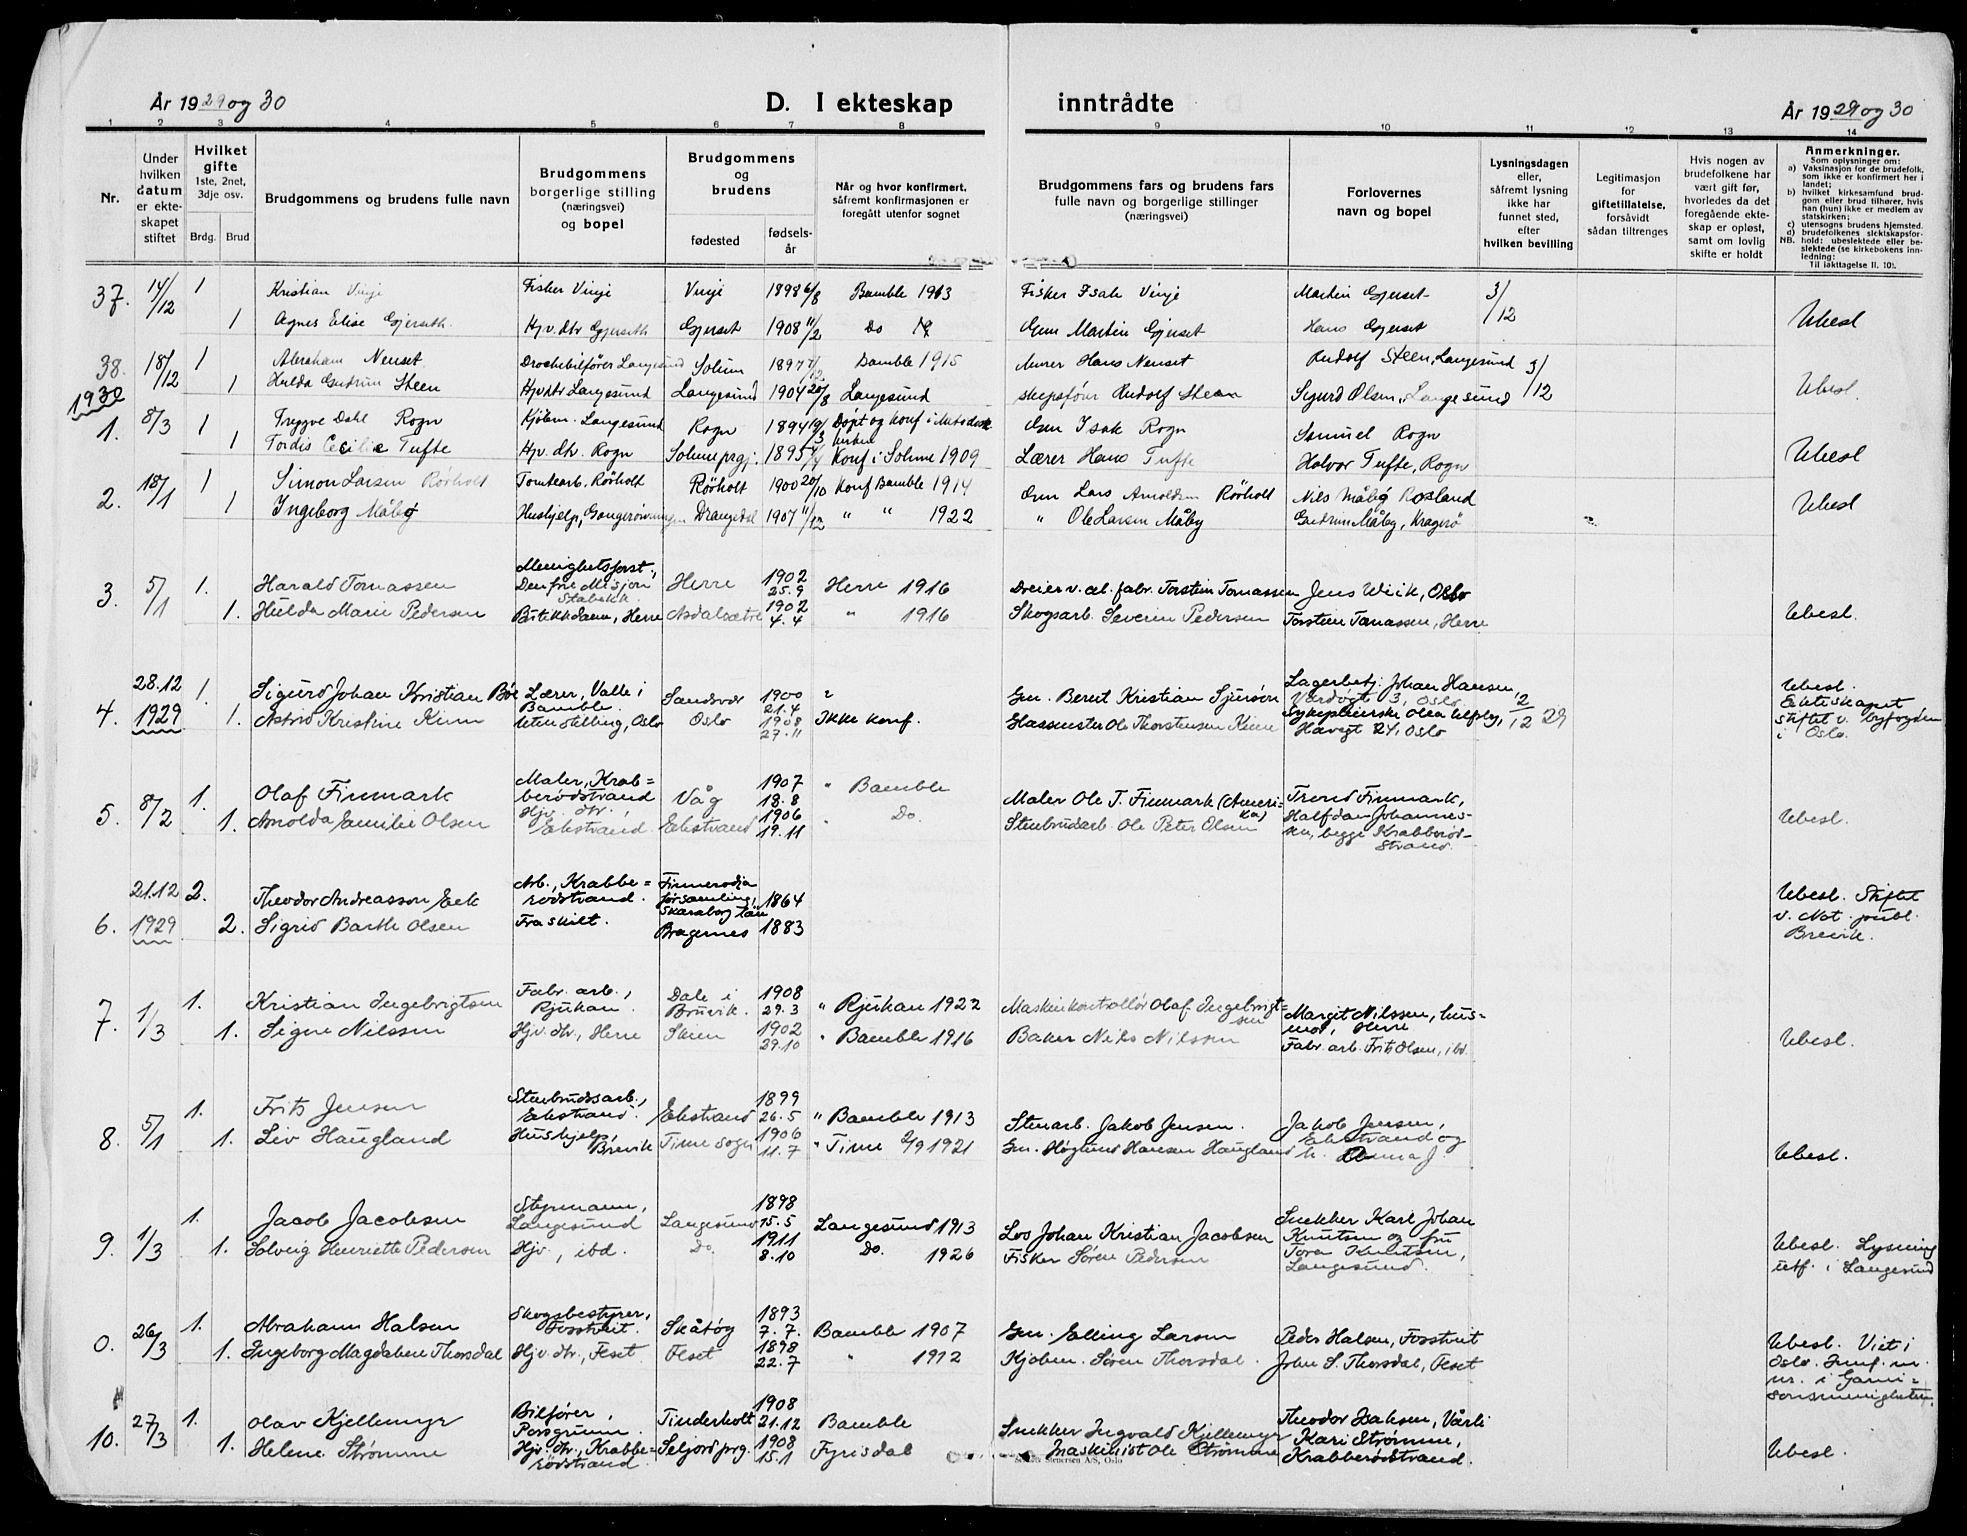 År 19 29 og 30
D. I ekteskap
inntrådte
År 19 29 og 30
1 2 3 4 5 6 7 8 9 10 11 12 13 14
Nr.
Under
hvilken
datum
er ekte-
skapet
stiftet
Hvilket
gifte
1ste, 2net,
3dje osv.
Brdg. Brud
Brudgommens og brudens fulle navn
Brudgommens
borgerlige stilling
(næringsvei)
og bopel
Brudgommens
og
brudens
fødested
fødsels-
år
Når og hvor konfirmert,
såfremt konfirmasjonen er
foregått utenfor sognet
Brudgommens fars og brudens fars
fulle navn og borgerlige stillinger
(næringsvei)
Forlovernes
navn og bopel
Lysningsdagen
eller,
såfremt lysning
ikke har
funnet sted,
efter
hvilken bevilling
Legitimasjon
for
giftetillatelse,
forsåvidt
sådan tiltrenges
Hvis nogen av
brudefolkene har
vært gift før,
hvorledes da det
foregående ekte-
skap er opløst,
samt om lovlig
skifte er holdt
Anmerkninger.
Som oplysninger om:
a) Vaksinasjon for de brudefolk,
som ikke er konfirmert her i
landet;
b) hvilket kirkesamfund brud-
gom eller brud tilhører, hvis
han (hun) ikke er medlem av
statskirken;
c) utensogns brudens hjemsted.
d) brudefolkenes slektskapsfor-
NB. hold: ubeslektede eller be-
slektede (se kirkebokens inn-
ledning:
Til iakttagelse II, 10).
37. 14/12 1 Kristian Vinje Fisker Vinje Vinje 1898 6/8 Bamble 1913 Fisker Isak Vinje Martin Gjerset 3/12
1 Agnes Elise Gjerseth Hjv. dtr Gjerseth Gjerset 1908 11/2 Do Gm Martin Gjerset Hans Gjerset Ubesl
38. 18/12 1 Abraham Nenset Drosjebilfører Langesund Solum 1897 Bamble 1915 Murer Hans Nenset Rudolf Steen, Langesund 3/12
1 Hulda Gudrun Steen Hjv dtr Langesund Langesund 1904 20/8 Langesund skipsfør Rudolf Steen Sigurd Olsen, Langesund Ubesl.
1930
1. 8/3 1 Trygve Dahl Rogn Kjøbm. Langesund Rogn 1894 19/3 Døpt og konf i Metodistk Gm Isak Rogn Samuel Rogn
kirken
1 Tordis Cecilie Tufte Hjv. dtr. Rogn Solum prgj. 1895 Konf i Solum 1909 Lærer Hans Tufte Halvor Tufte, Rogn Ubesl
2. 18/1 1 Simon Larsen Rörholt Tomtearb. Rörholt Rörholt 1900 20/10 Konf Bamble 1914 Gm Lars Arnoldsen Rörholt Nils Måby Rosland
1 Ingeborg Måby Hushjelp, Drangedal 1907 11/12 " " 1922 " Ole Larsen Måby Gudrun Måby, Kragerö Ubesl
3. 5/1 1. Harald Tomassen Menighetsforst., Den frie Misjon Stabekk Herre 1902 25.9 Herre 1916 Dreier v. cel. fabr. Torstein Tomassen Jens Wiik, Oslo
1. Hulda Marie Pedersen Butikkdame, Herre Asdalsætre 1902 4.4 " 1916 Skogsarb. Severin Pedersen Torstein Tomassen, Herre Ubesl.
4. 28.12 1929 1. Sigurd Johan Kristian Böe Lærer, Valle i Bamble. Sandsvær 1900 21.4 " Gm. Bernt Kristian Lagerbetj. Johan Hansen, 3, Oslo 2/12 29 Ubesl.
1. Astrid Kristine Kiim Uten stilling, Oslo Oslo 1908 27.11 Ikke konf. Glassmester Ole Thorstensen Kiim Sykepleierske Olea 24, Oslo Ekteskapet
stiftet v. byfogden
i Oslo.
5. 8/2 1. Olaf Finmark Maler, Krab=berödstrand Våg 1907 18.8 " Bamble Maler Ole T. Finmark (Ameri=ka) Trond Finmark,
1. Arnolda Emilie Olsen Hjv. dtr., Ekstrand Ekstrand 1906 19.11 " Do. Stenbrudarb. Ole Peter Olsen Halfdan Johannes-
sen, begge Krabberöd-
strand. Ubesl.
6. 21.12 1929 2. Theodor Andreasson Eek Arb., Krabbe=rödstrand. Finnerödja församling, Skaraborg län 1864 Ubesl. Stiftet
2. Sigrid Barthe Olsen Fraskilt. Bragernes 1883 v. Not. publ.
Brevik.
7. 1/3 1. Kristian Ingebrigtsen Fabr. arb., Rjukan. Dale i Bruvik. 1908 29.3 " Rjukan 1922 Maskinkontrollör Olaf Ingebrigt=sen Margit Nilssen, hus-
mor, Herre
1. Signe Nilssen Hjv. dtr., Herre Skien 1902 29.10 " Bamble 1916 Baker Nils Nilssen Fabr. arb. Frits Olsen, ibd. Ubesl.
8. 5/1 1. Frits Jensen Stenbrudsarb., Ekstrand. Ekstrand 1899 26.5 " Bamble 1913 Stenarb. Jakob Jensen. Jakob Jensen,
Ekstrand og
1. Liv Haugland Hushjelp, Brevik Time sogn 1906 11.7 " Time 2/9 1921 Gm. Høglund Hansen Haugland h. Anna J. Ubesl.
9. 1/3 1. Jacob Jacobsen Styrmann, Langesund Langesund 1898 15.5 Langesund 1913 Los Johan Kristian Jacobsen Snekker Karl Johan
Knutsen og fru
1. Solveig Henriette Pedersen Hjv., ibd. Do. 1911 8.10 Do. 1926 Fisker Søren Pedersen Tora Knutsen,
Langesund. Ubesl. Lysning
utf. i Langesund
0. 26/3 1. Abraham Halsen Skogsbestyrer, Fosstveit. Skåtöy 1893 7.7. Bamble 1907 Gm. Elling Larsen Peder Halsen, Fosstveit Ubesl. Viet i
1. Ingeborg Magdalene Thorsdal Hjv. dtr., Feset Feset 1898 22.7 " 1912 Kjøbm. Søren Thorsdal. John S. Thorsdal, Feset Oslo.
i Garni=
sonsmenigheten.
10. 27/3 1. Olav Kjellemyr Bilfører, Porsgrunn. Tinderholt 1908 21.12 Bamble Snekker Ingvald Kjellemyr Theodor Isaksen, Vårli
1. Helene Strømme Hjv. dtr., Krabbe=rödstrand. Seljord prg. 1908 15.1 Fyrisdal Maskinist Ole Strømme Kari Strømme,
Krabberödstrand. Ubesl.
Stenersen A/S, Oslo